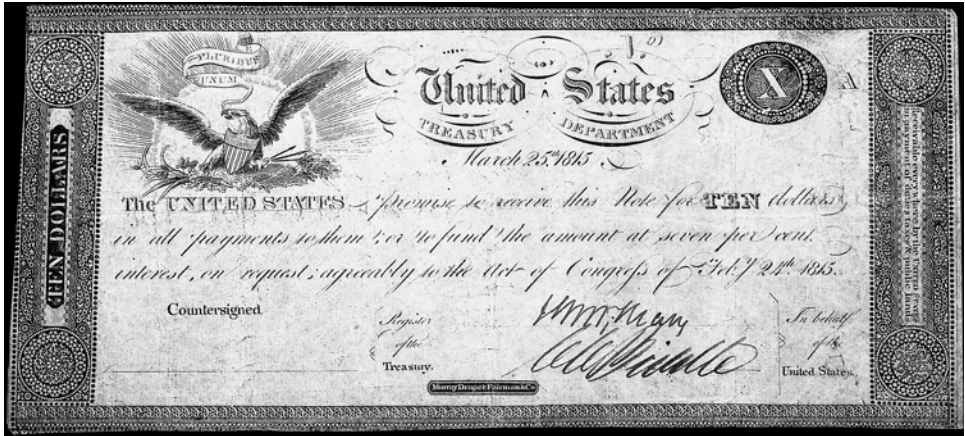 E
PLURIBUS
UNUM
No)
United States
TREASURY DEPARTMENT
March 25th. 1815
X
A
TEN DOLLARS
The UNITED STATES promise to receive this Note for TEN dollars
in all payments to them; or to fund the amount at seven per cent.
interest, on request; agreeably to the Act of Congress of Feby 24th. 1815.
Countersigned
Register
of the
Treasury.
In behalf
of the
United States.
Murray Draper Fairman & Co
Receivable every where by the United States
in payment of duties taxes & public lands